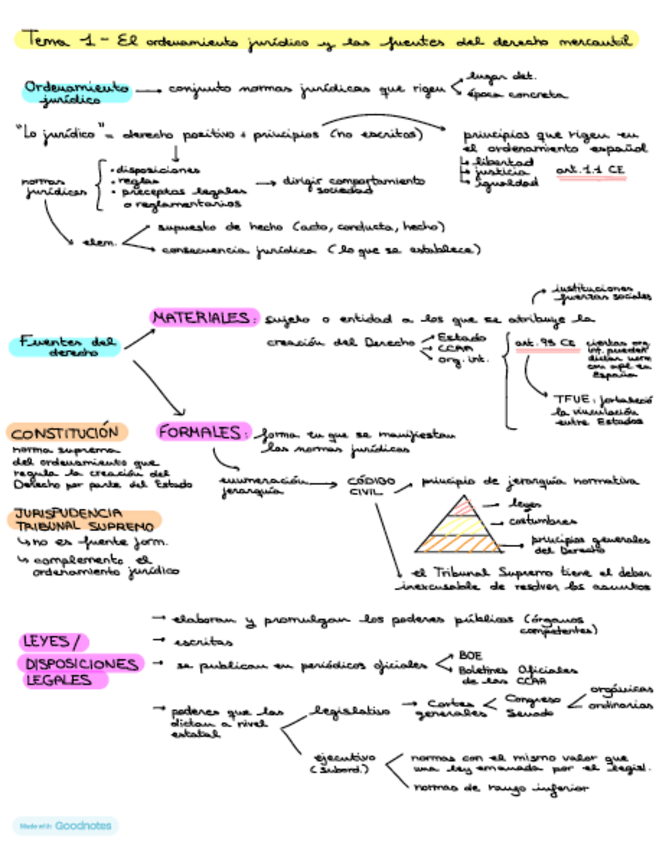 Tema 1 - El ordenamiento jurídico y las fuentes del derecho mercantil
Ordenamiento jurídico → conjunto normas jurídicas que rigen
lugar det.
época concreta
"Lo jurídico" = derecho positivo + principios (no escritos)
principios que rigen en
el ordenamiento español
libertad
justicia
igualdad
art. 1.1 CE
normas
jurídicas
• disposiciones
• reglas
• preceptos legales
o reglamentarios
→ dirigir comportamiento
sociedad
elem.
supuesto de hecho (acto, conducta, hecho)
consecuencia jurídica (lo que se establece)
Fuentes del
derecho
MATERIALES: sujeto o entidad a los que se atribuye la
creación del Derecho
Estado
CCAA
org. int.
instituciones
fuerzas sociales
art. 93 CE
ciertas org.
int. pueden
dictar
en
España
TFUE: fortaleció
la vinculación
entre Estados
CONSTITUCIÓN
norma suprema
del ordenamiento que
regula la creación del
Derecho por parte del Estado
FORMALES: forma en que se manifiestan
las normas jurídicas
enumeración
jerarquía
→ CÓDIGO
CIVIL
principio de jerarquía normativa
leyes
costumbres
principios generales
del Derecho
el Tribunal Supremo tiene el deber
inexcusable de resolver los asuntos
JURISPUDENCIA
TRIBUNAL SUPREMO
↳ no es fuente form.
↳ complemento el
ordenamiento jurídico
LEYES/
DISPOSICIONES
LEGALES
→ elaboran y promulgan los poderes públicos (órganos
competentes)
→ escritas
→ se publican en periódicos oficiales
BOE
Boletines Oficiales
de las CCAA
→ poderes que las
dictan a nivel
estatal
legislativo → Cortes
generales
Congreso
Senado
orgánicas
ordinarias
ejecutivo
(subord.)
normas con el mismo valor que
una ley emanada por el legisl.
normas de rango inferior
Made with Goodnotes